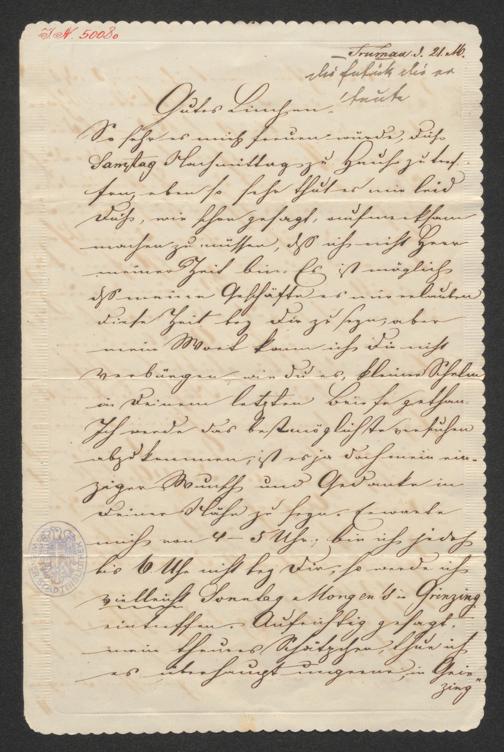 I. N. 50080
Gutes Linchen.
So sehr es mich freuen würde, dich
Samstag Nachmittag zu Hause zu tref-
fen, eben so sehr thut es mir leid
Dich, wie schon gesagt, aufmerksam
machen zu müssen, dß ich nicht Herr
meiner Zeit bin. Es ist möglich,
dß meine Geschäfte es mir erlauben
diese Zeit bey Dir zu seyn, aber
mein Wort kann ich dir nicht
verbürgen, wie du es, kleiner Schelm
in Deinem letzten Briefe gethan.
Ich werde das bestmöglichste versuchen
abzukommen, ist es ja doch mein ein-
ziger Wunsch und Gedanke in
Deiner Nähe zu seyn. Erwarte
mich von 4 - 5 Uhr; bin ich jedoch
bis 6 Uhr nicht bey Dir, so werde ich
vielleicht Sonntag Morgen's in Grinzing
eintreffen. Aufrichtig gesagt,
mein theures Schätzchen, thue ich
es überhaupt ungerne, in Grin-
zing